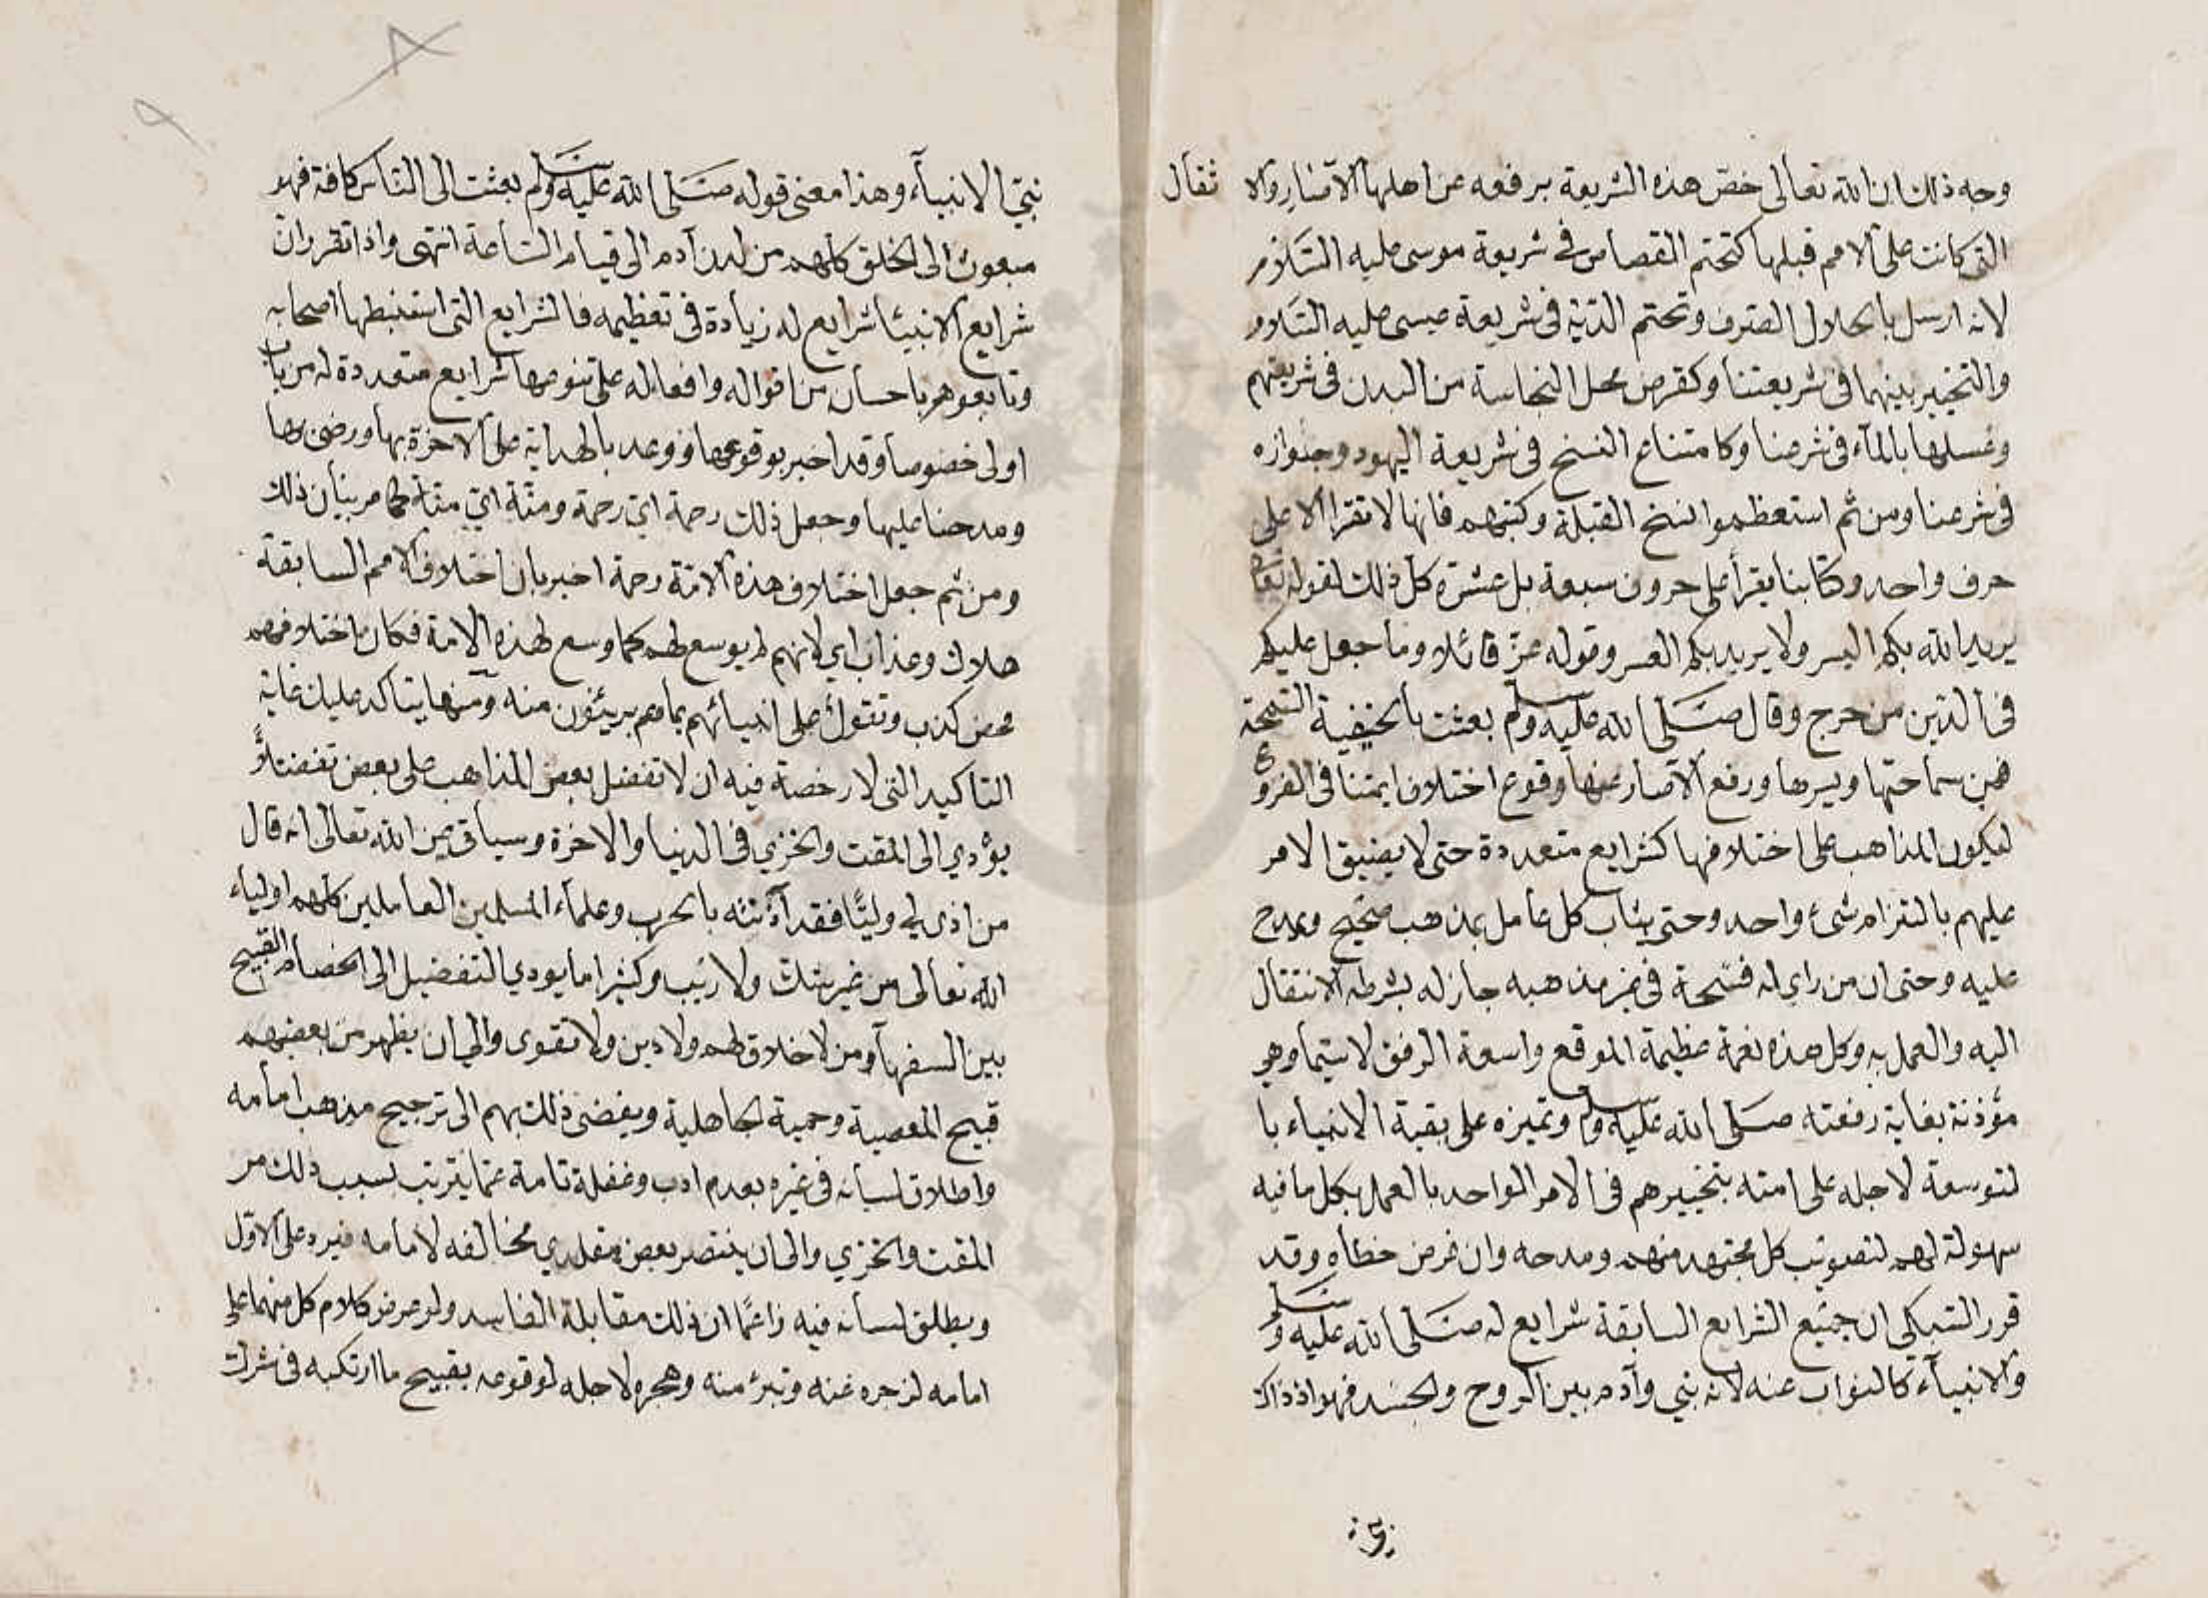 وجه ذلك ان الله تعالى خصّ هذه الشريعة برفعه عن اهلها الآصار والا ثقال
التي كانت على الامم قبلها كتحتم القصاص في شريعة موسى عليه السّلام
لانه ارسل بالجلال الصرف وتحتم الديّة في شريعة عيسى عليه السّلام
والتخيير بينهما في شريعتنا وكقرض محل النجاسة من البدن في شريعتهم
وغسلها بالمآء في شرعنا وكامتناع النسخ في شريعة اليهود وجوازه
في شرعنا ومن ثم استعظموا نسخ القبلة وكتبهم فانها لا تقرا الا على
حرف واحد وكتابنا يقرأ على حروف سبعة بل عشرة كل ذلك لقوله تعالى
يريد الله بكم اليسر ولا يريد بكم العسر وقوله عزّ قائلا وما جعل عليكم
في الدّين من حرج وقال صَلّى الله عليه وسلم بعثت بالحنيفية السّمحة
فمن سماحتها ويسرها ورفع الآصار عنها وقوع اختلاف ايمتنا في الفروع
لتكون المذاهب على اختلافها كشرايع متعددة حتى لا يضيق الامر
عليهم بالتزام شئ واحد وحتى يثاب كل عامل بمذهب صحيح ويمدح
عليه وحتى ان من راى له فسحة في غير مذهبه جاز له بشرطه الانتقال
اليه والعمل به وكل هذه نعمة عظيمة الموقع واسعة الرفق لا سيّما وهو
مؤذنة بغاية رفعته صَلّى الله عليه وسلم وتميزه على بقية الانبياء با
لتوسعة لاجله على امته بتخييرهم في الامر الواحد بالعمل بكل ما فيه
سهولة لهم لتصويب كل مجتهد منهم ومدحه وان فرض خطاه وقد
قرر السّبكي ان جميع الشرايع السابقة شرايع له صَلّى الله عليه وسلم
والانبيآء كالنواب عنه لانه نبي وآدم بين الروح والجسد فهو اذ ذاك
نبيّ الانبيآء وهذا معنى قوله صَلّى الله عليه وسلم بعثت الى النّاس كافة فهو
مبعوث الى الخلق كلهم من لدن آدم الى قيام السّاعة انتهى واذا تقرر ان
شرايع الانبيا شرايع له زيادة في تعظيمه فالشرايع التي استنبطها اصحابه
وتابعوهم باحسان من اقواله وافعاله على تنوعها شرايع متعددة له من باب
اولى خصوصا وقد اخبر بوقوعها ووعد بالهداية على الاخرة بها ورضي بها
ومدحنا عليها وجعل ذلك رحمة ايّ رحمة ومنّة ايّ منّة كما مر بيان ذلك
ومن ثم جعل اختلاف هذه الامّة رحمة اخبر بان اختلاف الامم السابقة
هلاك وعذاب اي لانهم لم يوسع لهم كما وسع لهذه الامة فكان اختلافهم
محض كذب وتقول على انبيائهم بما هم بريئون منه ومنها يتاكد عليك غاية
التاكيد التي لا رخصة فيه ان لا تفضل بعض المذاهب على بعض تفضيلاً
يؤدي الى المقت والخزي في الدنيا والاخرة وسياتي عن الله تعالى انه قال
من اذى لي وليًّا فقد آذنته بالحرب وعلمآء المسلمين العاملين كلهم اولياء
الله تعالى من غير شك ولا ريب وكثيرا ما يودي التفضيل الى الخصام القبيح
بين السفهآ ومن لا خلاق لهم ولا دين ولا تقوى والى ان يظهر من بعضهم
قبيح المعصية وحمية الجاهلية ويفضى ذلك بهم الى ترجيح مذهب امامه
واطلاق لسانه في غيره بعدم ادب وغفلة تامة عمّا يترتب بسبب ذلك من
المقت والخزي والى ان ينتصر بعض مقلدي مخالفه لامامه فيرد على الاوّل
ويطلق لسانه فيه زاعمًا ان ذلك مقابلة الفاسد ولو عرض كلام كل منهما على
امامه لزجره عنه وتبرئ منه وهجره لاجله لوقوعه بقبيح ما ارتكبه في شرك